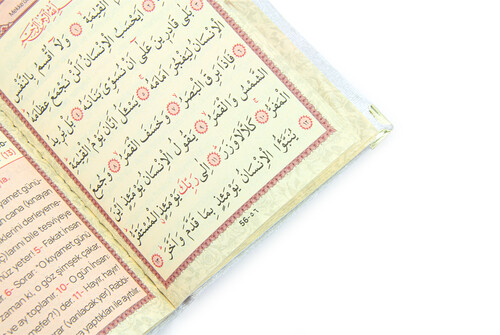 الْقِيٰمَةِۙ ﴿١﴾ وَلَٓا اُقْسِمُ بِالنَّفْسِ
اَيَحْسَبُ الْاِنْسَانُ اَلَّنْ نَجْمَعَ عِظَامَهُۜ
بَلٰى قَادِر۪ينَ عَلٰٓى اَنْ نُسَوِّيَ بَنَانَهُ ﴿٤﴾ بَلْ يُر۪يدُ
الْاِنْسَانُ لِيَفْجُرَ اَمَامَهُۚ ﴿٥﴾ يَسْـَٔلُ اَيَّانَ يَوْمُ الْقِيٰمَةِۜ ﴿٦﴾
فَاِذَا بَرِقَ الْبَصَرُۙ ﴿٧﴾ وَخَسَفَ الْقَمَرُۙ ﴿٨﴾ وَجُمِعَ
الشَّمْسُ وَالْقَمَرُۙ ﴿٩﴾ يَقُولُ الْاِنْسَانُ يَوْمَئِذٍ اَيْنَ
الْمَفَرُّۚ ﴿١٠﴾ كَلَّا لَا وَزَرَۜ ﴿١١﴾ اِلٰى رَبِّكَ يَوْمَئِذٍ الْمُسْتَقَرُّۜ ﴿١٢﴾
يُنَبَّؤُا الْاِنْسَانُ يَوْمَئِذٍ بِمَا قَدَّمَ وَاَخَّرَۜ ﴿١٣﴾
56-٥٦
(13)
yamet günü-
n cana (kınayan
klerini derleyeme-
ç)larını bile tesviyeye
nüz yeter! 5- Fakat insan
6- Sorar: "O kıyamet günü
zaman ki, o göz şimşek çakar,
ve ay toplanır. 10- O gün insan
mefer?!) der. 11- Hayır, hayır!
rar (varılacak yer) Rabbi-
yaptıkları ile ayrılır.